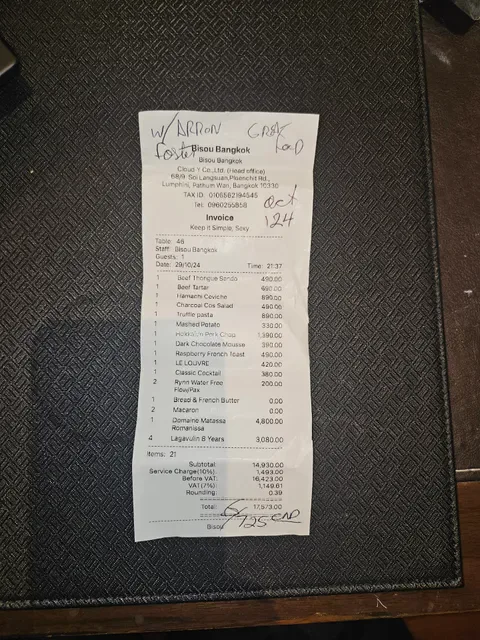 W/ ARRON
Foster
Bisou Bangkok
Bisou Bangkok
Cloud Y Co.,Ltd. (Head office)
68/9 Soi Langsuan,Ploenchit Rd.,
Lumphini, Pathum Wan, Bangkok 10330
TAX ID: 0105562194545
Tel: 0960255858
Oct
124
Invoice
Keep it Simple, Sexy
Table: 46
Staff: Bisou Bangkok
Guests: 1
Date: 29/10/24 Time: 21:37
1 Beef Thongue Sando 490.00
1 Beef Tartar 690.00
1 Hamachi Ceviche 890.00
1 Charcoal Cos Salad 480.00
1 Truffle pasta 890.00
1 Mashed Potato 330.00
1 Pork 1,390.00
1 Dark Chocolate Mousse 390.00
1 Raspberry French Toast 490.00
1 LE LOUVRE 420.00
1 Classic Cocktail 380.00
2 Rynn Water Free 200.00
Flow/Pax
1 Bread & French Butter 0.00
2 Macaron 0.00
1 Domaine Matassa 4,800.00
Romanissa
4 Lagavulin 8 Years 3,080.00
Items: 21
Subtotal: 14,930.00
Service Charge(10%): 1,493.00
Before VAT: 16,423.00
VAT(7%): 1,149.61
Rounding: 0.39
Total: 17,573.00
Bisou
725 CAD